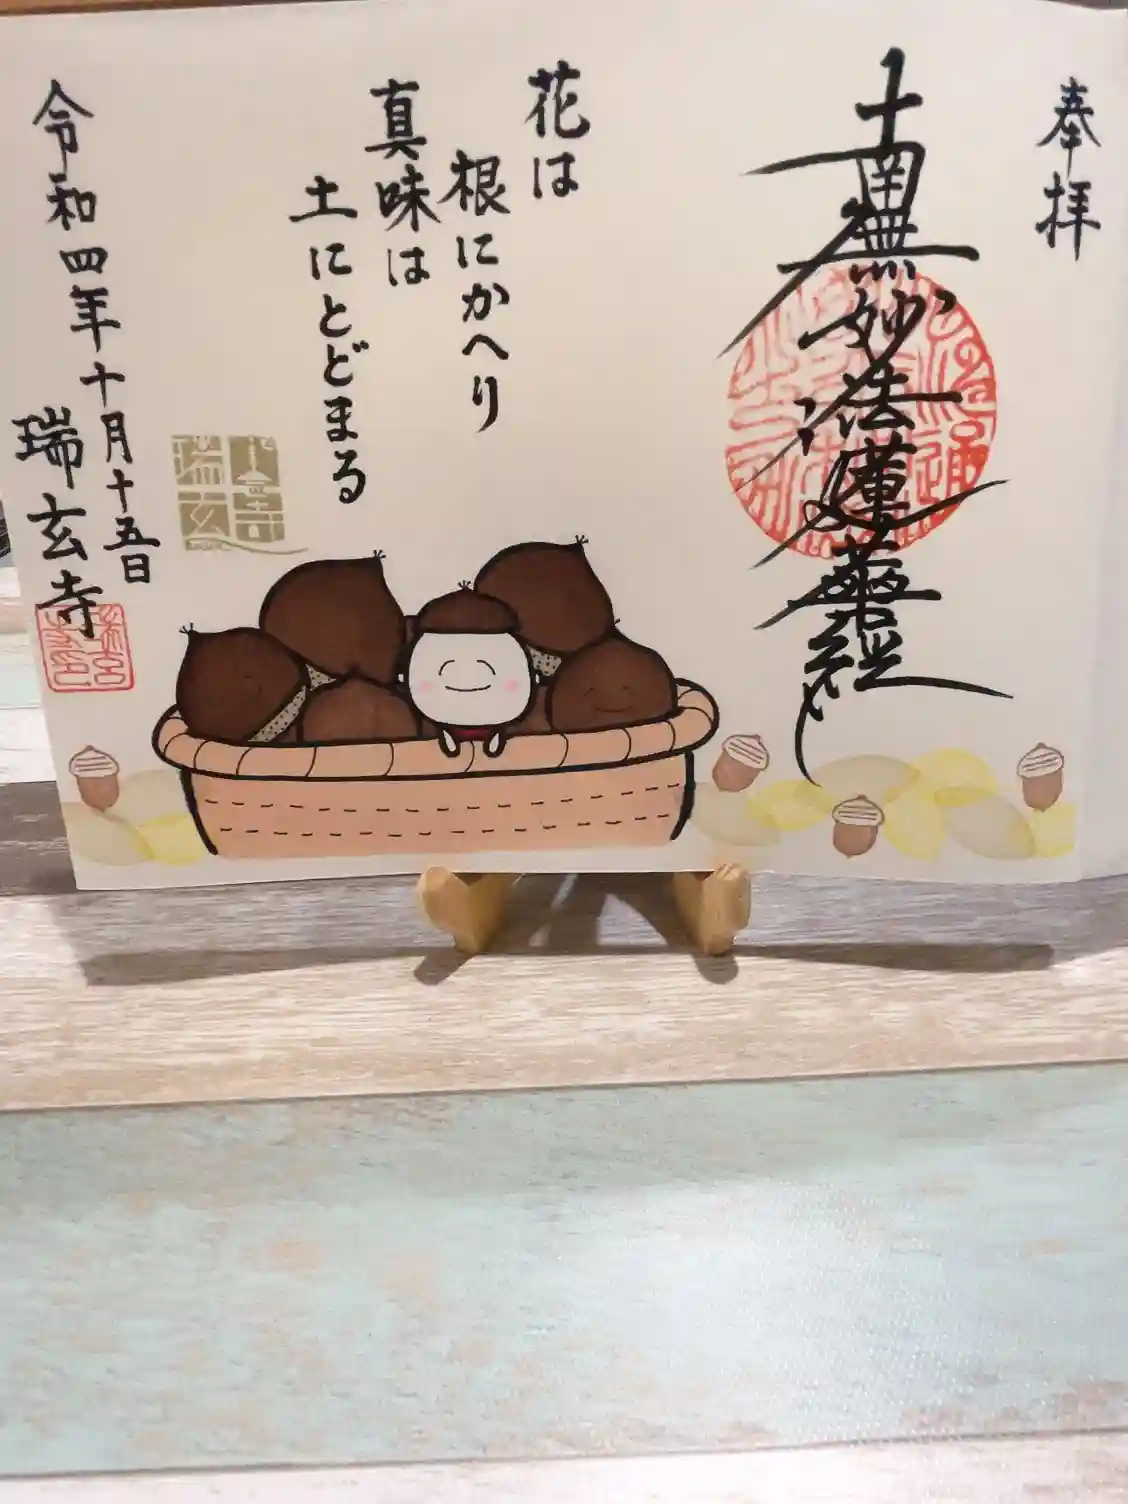 奉拝
南無妙法蓮華経
花は
根にかへり
真味は
土にとどまる
瑞玄寺
令和四年十月十五日
瑞玄寺